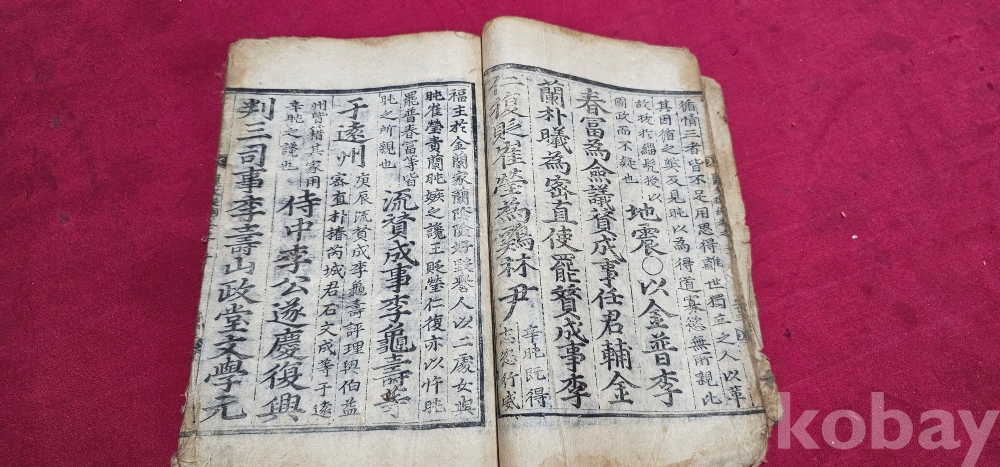 循情三者皆不足用思得離世獨立之人以革
其因循之弊及見旽以為得道寡慾無所親比
故拔於緇髡授以
國政而不疑也
地震○以金普李
春富為僉議贊成事任君輔金
蘭朴曦為密直使罷贊成事李
仁復貶崔瑩為鷄林尹
辛旽旣得
志恣行威
福主於金蘭家蘭險好毀譽人以二處女與
旽崔瑩責蘭旽嫉之讒王貶瑩仁復亦以忤旽
罷普春富等皆
旽之所親也
流贊成事李龜壽等
于遠州
庚辰流贊成李龜壽評理伯益
密直朴椿芮城君石文成等于遠
州皆籍其家用
辛旽之譖也
侍中李公遂慶復興
判三司事李壽山政堂文學元
kobay